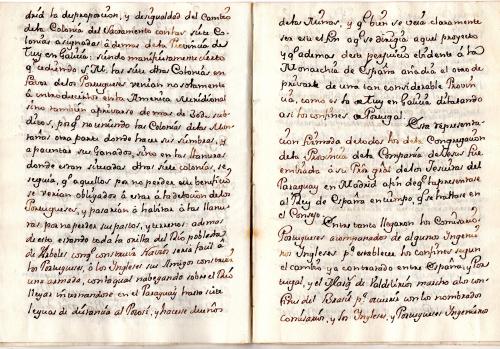 dría la desproporcion, y desigualdad del cambio
de la Colonia del Sacramento con las siete Co-
lonias asignadas à demas de la Provincia de
Tuy en Galicia: siendo manifiestamente cierto
qᵉ cediendo S. M. las siete dhas Colonias en
favor de los Portugueses venian no solamente
à introducirlos en la America Meridional
sino tambien à privarse de mas de 30 sub-
ditos, porqᵉ no teniendo las Colonias de las Mon-
tañas otra parte donde hacer sus siembras, y
apacentar sus Ganados, sino en las llanuras
donde estan situadas dhas siete colonias, se
seguia, qᵉ aquellos pa no perder este beneficio
se verian obligados à estar à la devocion de los
Portugueses, y pasarian à habitar à las llanu-
ras por no perder sus pastos, y terrenos: ademas
de esto estando toda la orilla del Rio poblada
de Arboles con qᵉ construir Navios sería facil à
los Portugueses, ò los Ingleses sus Amigos construir
una armada, con la qual nabegando sobre el Rio
Uruay internandose en el Paraguay hasta siete
leguas de distancia al Potosi, y hacerse dueños
de las Minas, y qᵉ bien se veía claramente
ser ese el fin à qᵉ se dirigía aquel proyecto
y qᵉ ademas de este perjuicio evidente à la
Monarchia de España añadia el otro de
privarle de una tan considerable Provin-
cia, como es la de Tuy en Galicia dilatando
asi los confines de Portugal.
Esta representa-
cion firmada de todos los de la Congregacion
de la Provincia de la Compañia de Jesus fue
embiada à su Pror gral de los Jesuitas del
Paraguay en Madrid afin de qᵉ la presentase
al Rey de España en tiempo, qᵉ se tratase en
el Consejo.
Entre tanto llegaron los Comisarios
Portugueses acompañados de algunos Ingenie-
ros Ingleses pa establecer los confines segun
el cambio ya contratado entre España, y Por-
tugal, y el Marqˢ de Valdelirios marchó à los con-
fines del Brasil pa reunirse con los nombrados
Comisarios, y los Ingleses, y Portugueses Ingenieros